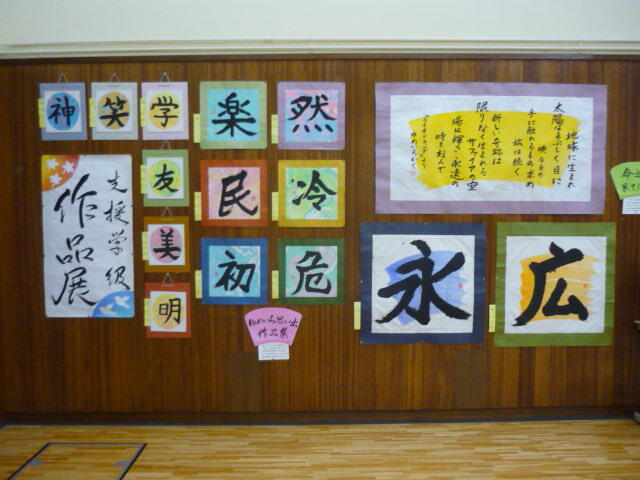 神
笑
学
楽
然
友
民
冷
美
初
危
明
支援学級
作品展
地球に生まれ
太陽はまぶしく目に
映るもの
手に触れるもの求め
旅は続く
限りなく生まれる
新しい奇跡は
サファイアの空
陽は輝き永遠の
時を刻んで
作品集
永
広